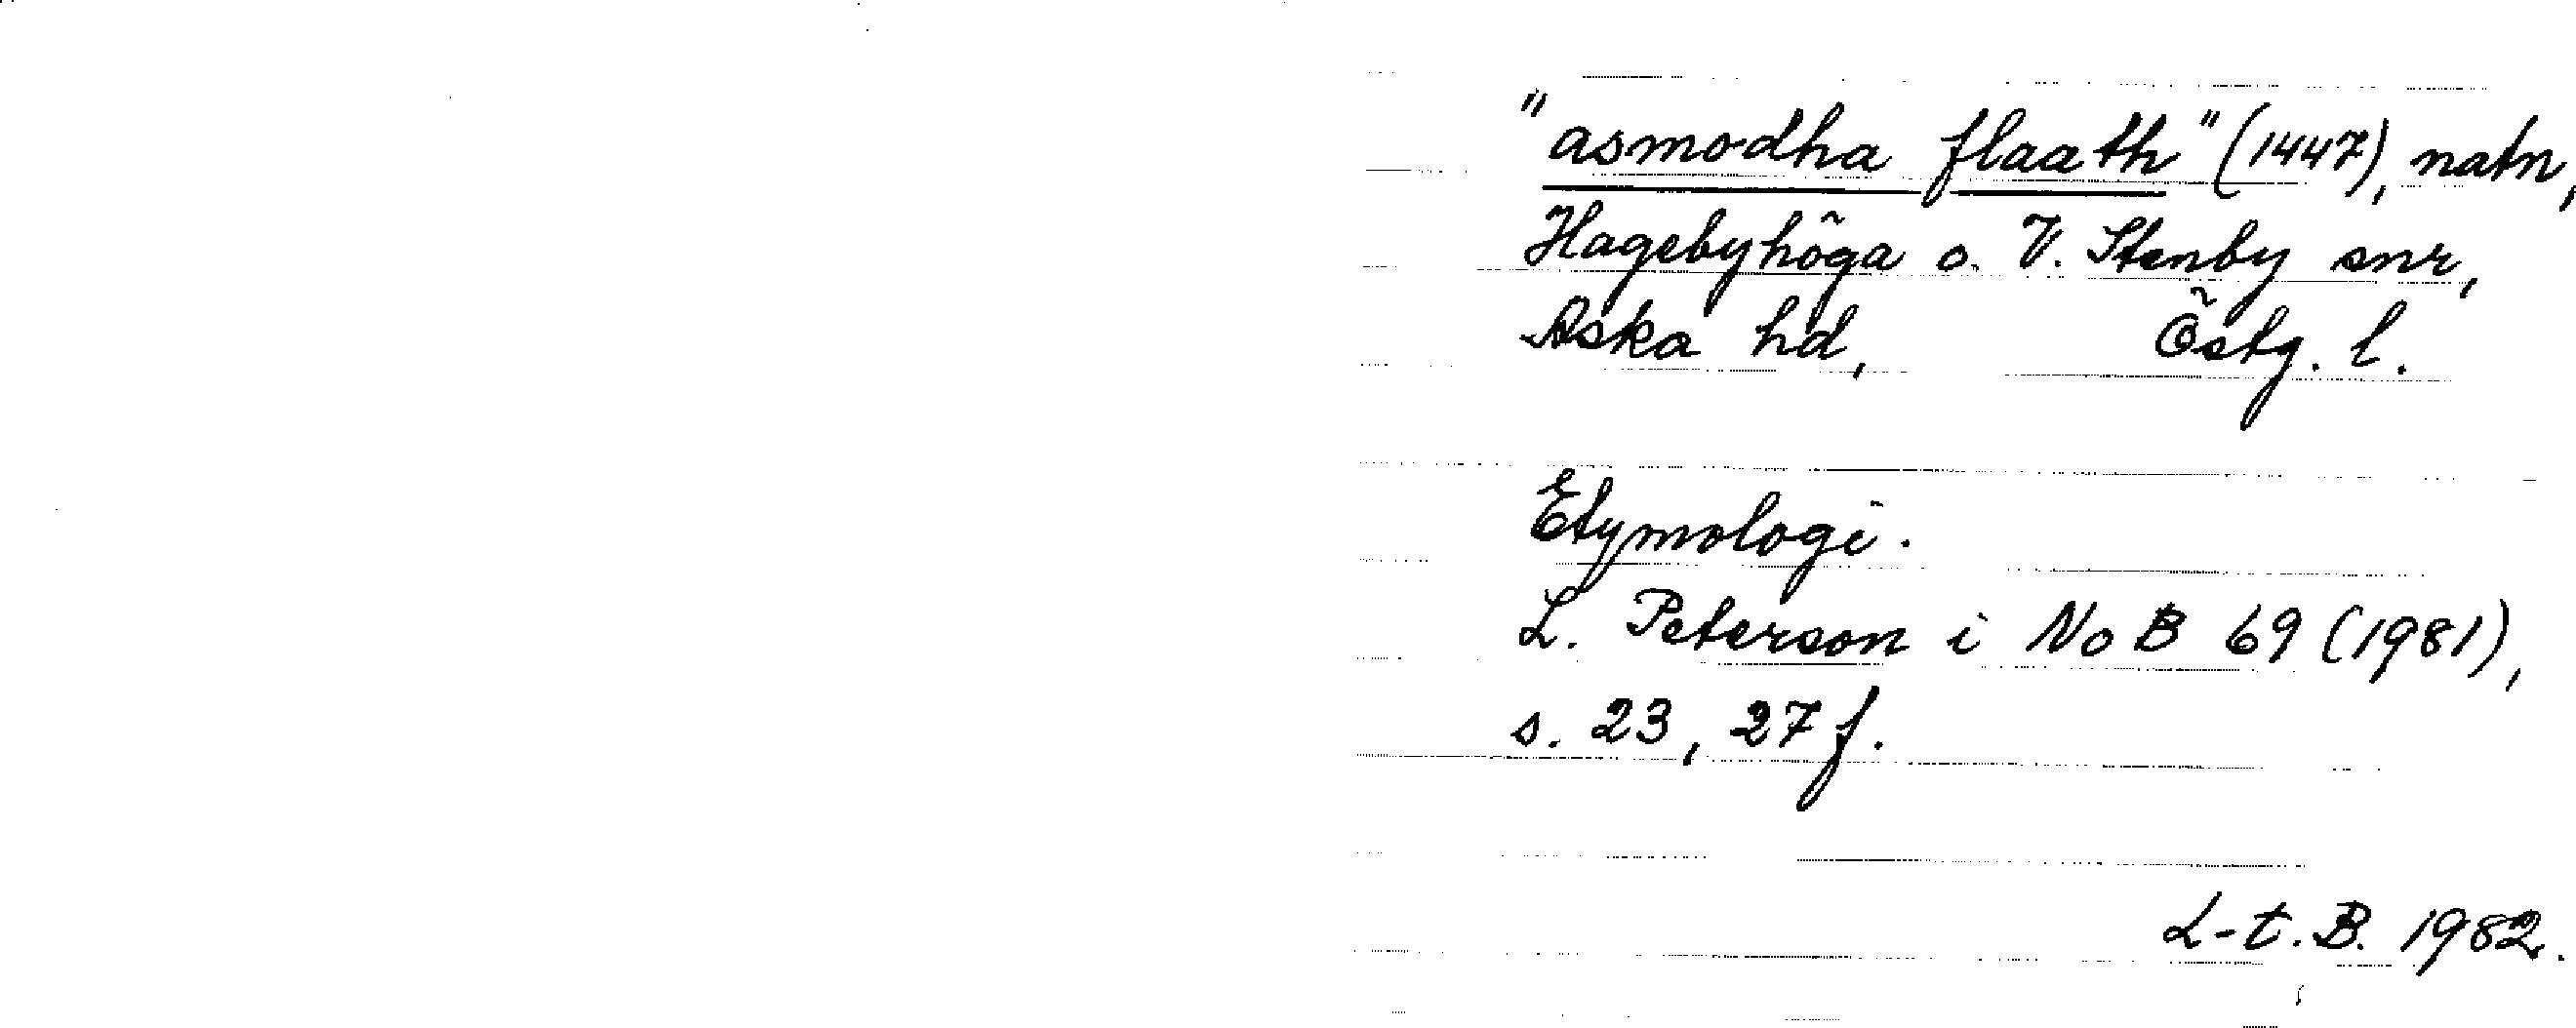 "asmodha flaath" (1447), natn,
Hagebyhöga o. V. Stenby snr,
Aska hd, Östg. l.
Etymologi.
L. Peterson i NoB 69 (1981),
s. 23, 27 f.
L-t. B. 1982.